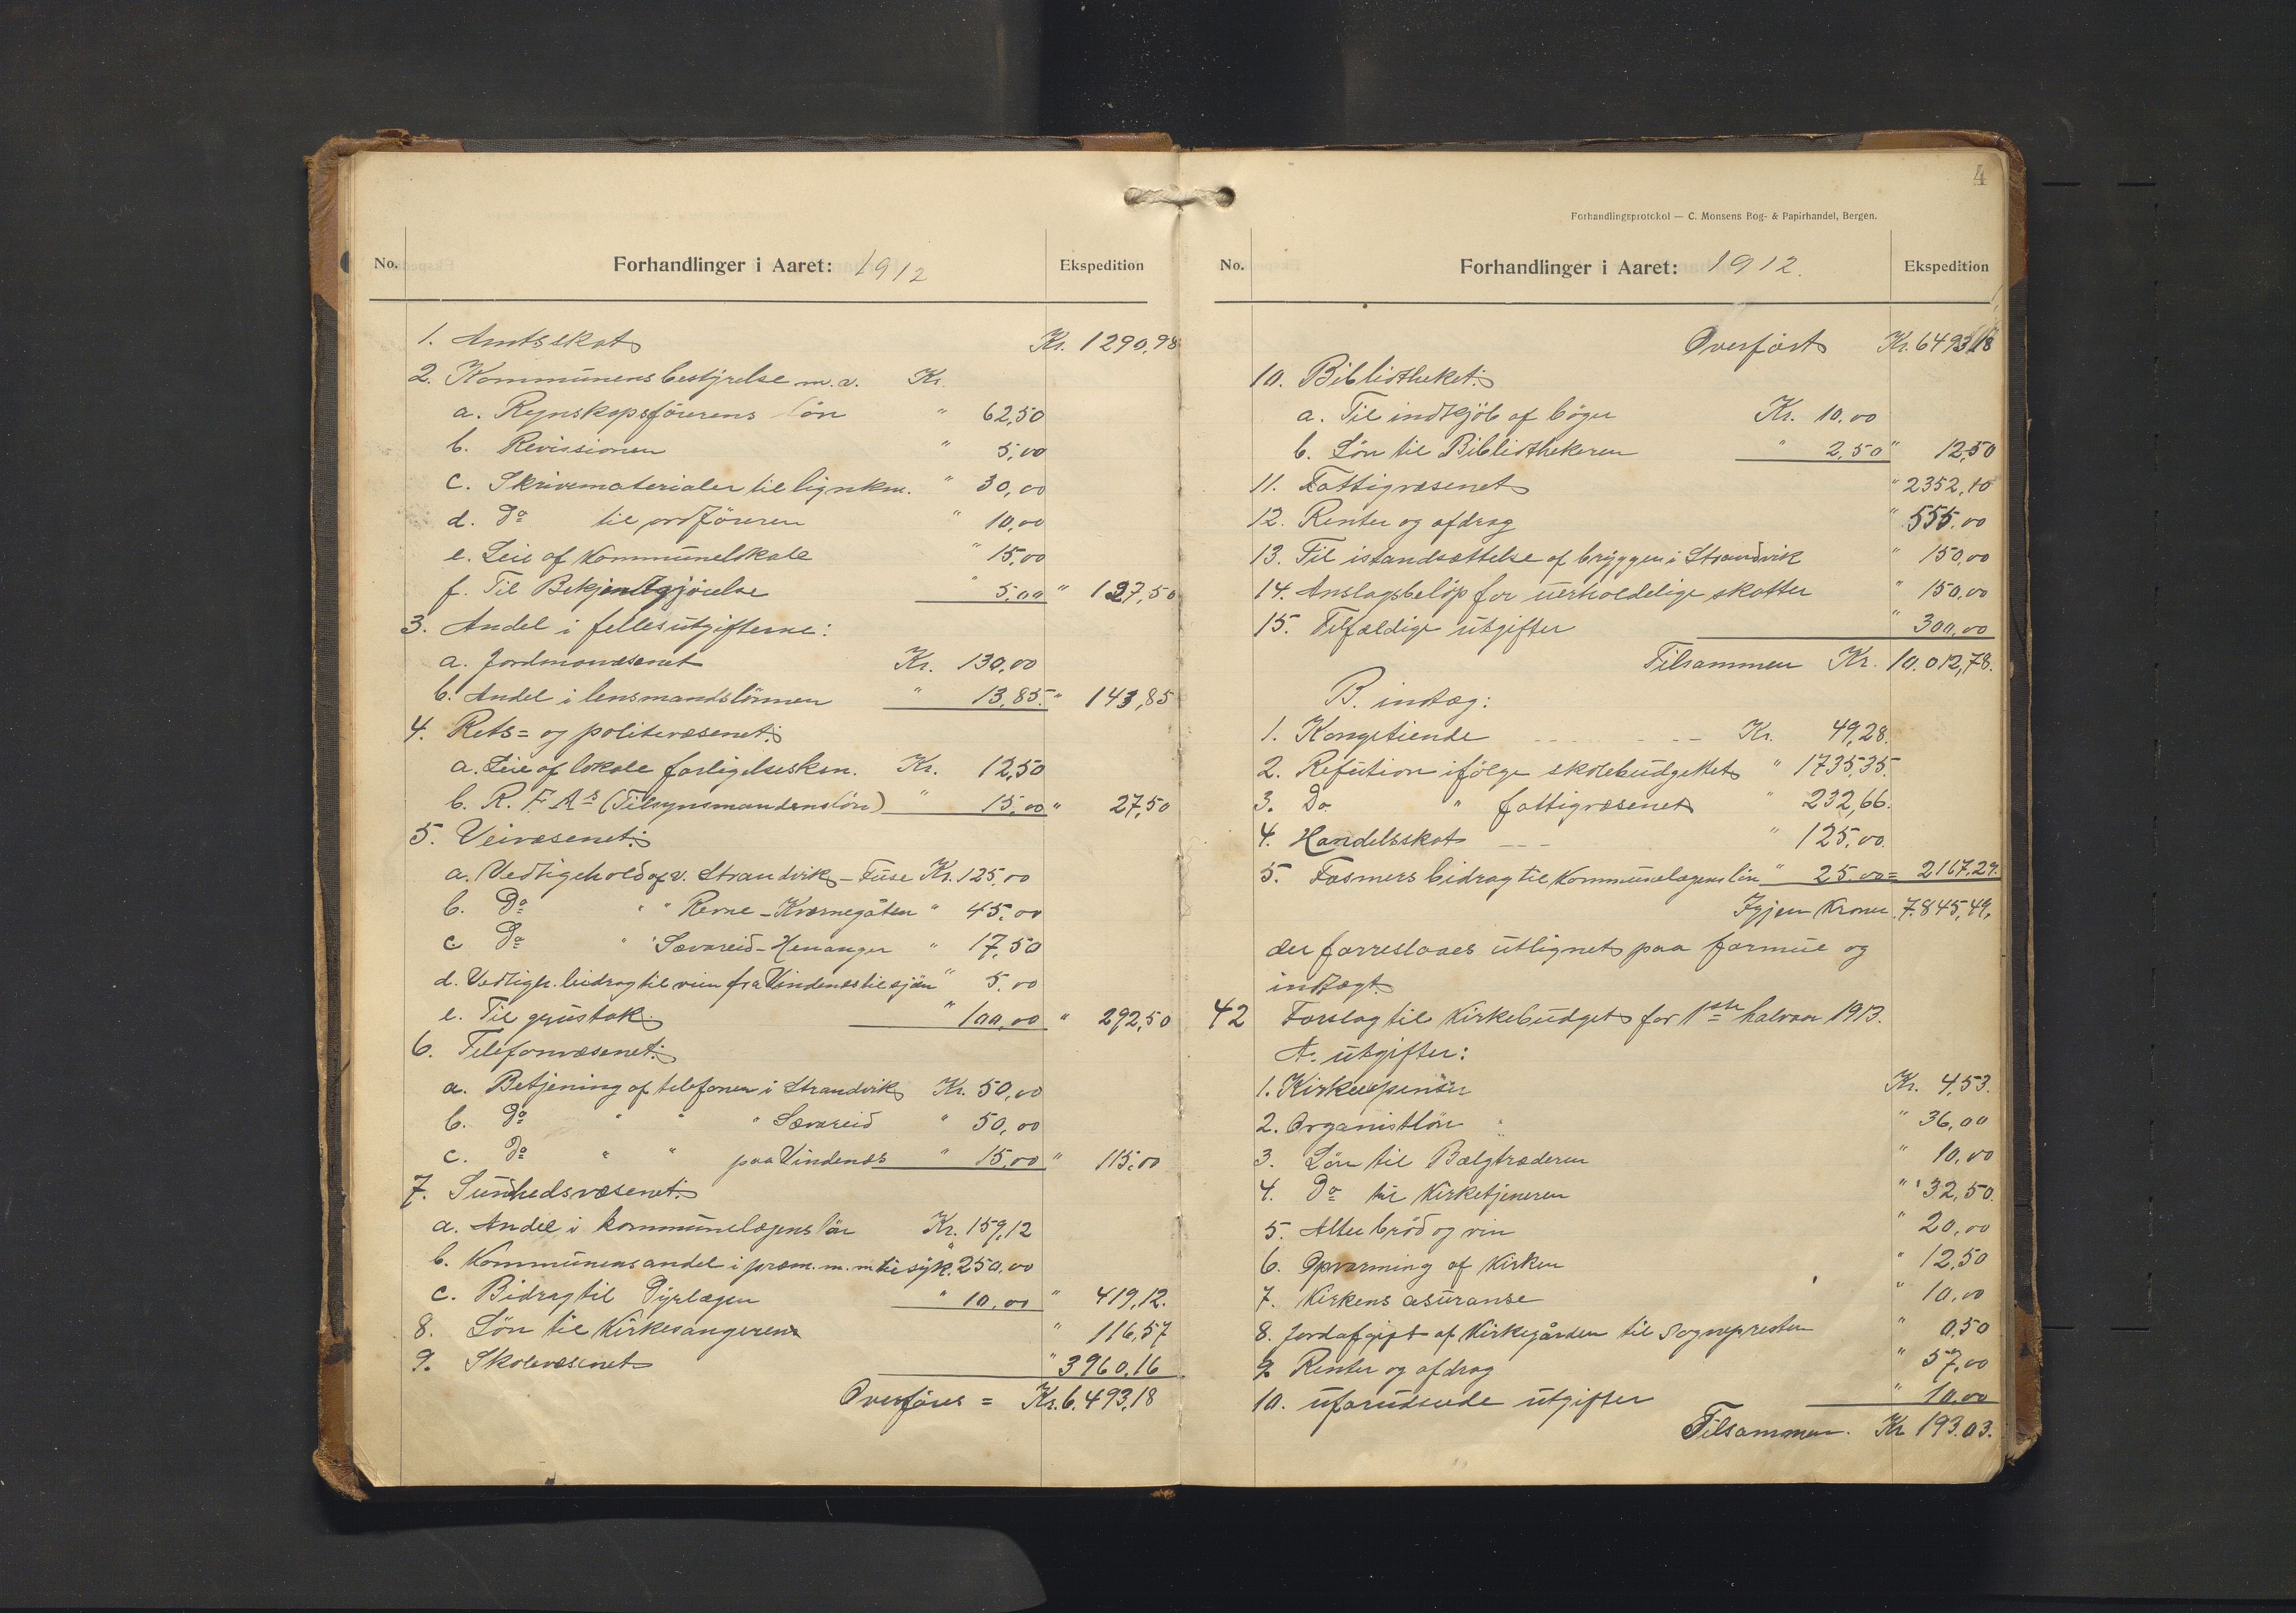 No. Forhandlinger i Aaret: 1912 Ekspedition
1. Amtsskat Kr. 1290,98
2. Kommunens bestyrelse m.v. Kr.
a. Regnskapsførerens løn " 62,50
b. Revissionen " 5,00
c. Skrivematerialer til lignkm. " 30,00
d. Do til ordføreren " 10,00
e. Leie af Kommunelokale " 15,00
f. Til Bekjendtgjørelse " 5,00 " 127,50
3. Andel i fellesutgifterne:
a. Jordmorvæsenet Kr. 130,00
b. Andel i lensmandslønnen " 13,85 " 143,85
4. Rets= og politivæsenet:
a. Leie af lokale forligelseskom. Kr. 12,50
b. R. F. As (Tilsynsmandens løn) " 15,00 " 27,50
5. Veivæsenet:
a. Vedligehold af v. Strandvik - Fuse Kr. 125,00
b. Do " " Revne - Kvernegåten " 45,00
c. Do " " Sævareid - Henanger " 17,50
d. Vedligh. bidrag til veien fra Vindenes til sjøn " 5,00
e. Til grustak " 100,00 " 292,50
6. Telefonvæsenet:
a. Betjening af telefonen i Strandvik Kr. 50,00
b. Do " " " Sævareid " 50,00
c. Do " " paa Vindenes " 15,00 " 115,00
7. Sundhedsvæsenet:
a. Andel i kommunelægens løn Kr. 159,12
b. Kommunens andel i præm. m. m. til syk. " 250,00
c. Bidrag til Dyrlægen " 10,00 " 419,12.
8. Løn til Kirkesangeren " 116,57
9. Skolevæsenet " 3960,16
Overføres = Kr. 6.493,18
4
Forhandlingsprotokol — C. Monsens Bog- & Papirhandel, Bergen.
No. Forhandlinger i Aaret: 1912. Ekspedition
Overført Kr. 6493,18
10. Bibliotheket:
a. Til indkjøb af bøger Kr. 10,00
b. Løn til Bibliothekeren " 2,50 " 12,50
11. Fattigvæsenet " 2352,10
12. Renter og afdrag " 555,00
13. Til istandsættelse af bryggen i Strandvik " 150,00
14. Anslagsbeløp for uerholdelige skatter " 150,00
15. Tilfældige utgifter " 300,00
Tilsammen Kr. 10.012,78.
B. indtæg:
1. Kongetiende Kr. 49,28.
2. Refution ifølge skolebudgettet " 1735,35.
3. Do " fattigvæsenet " 232,66.
4. Handelsskat " 125,00.
5. Fosmers bidrag til Kommunelægens løn " 25,00 = 2167,29.
Igjen Kroner 7.845,49.
der forreslaaes utlignet paa formue og
indtægt.
42 Forslag til Kirkebudget for 1ste halvaar 1913.
A. utgifter:
1. Kirkeexpenser Kr. 4,53.
2. Organistløn " 36,00
3. Løn til Bælgtræderen " 10,00
4. Do til Kirketjeneren " 32,50.
5. Alterbrød og vin " 20,00
6. Opvarming af Kirken " 12,50
7. Kirkens asuranse " 10,00
8. Jordafgift af Kirkegården til Sognepresten " 0,50
9. Renter og afdrag " 57,00
10. uforudseede utgifter " 10,00
Tilsammen. Kr 193.03.